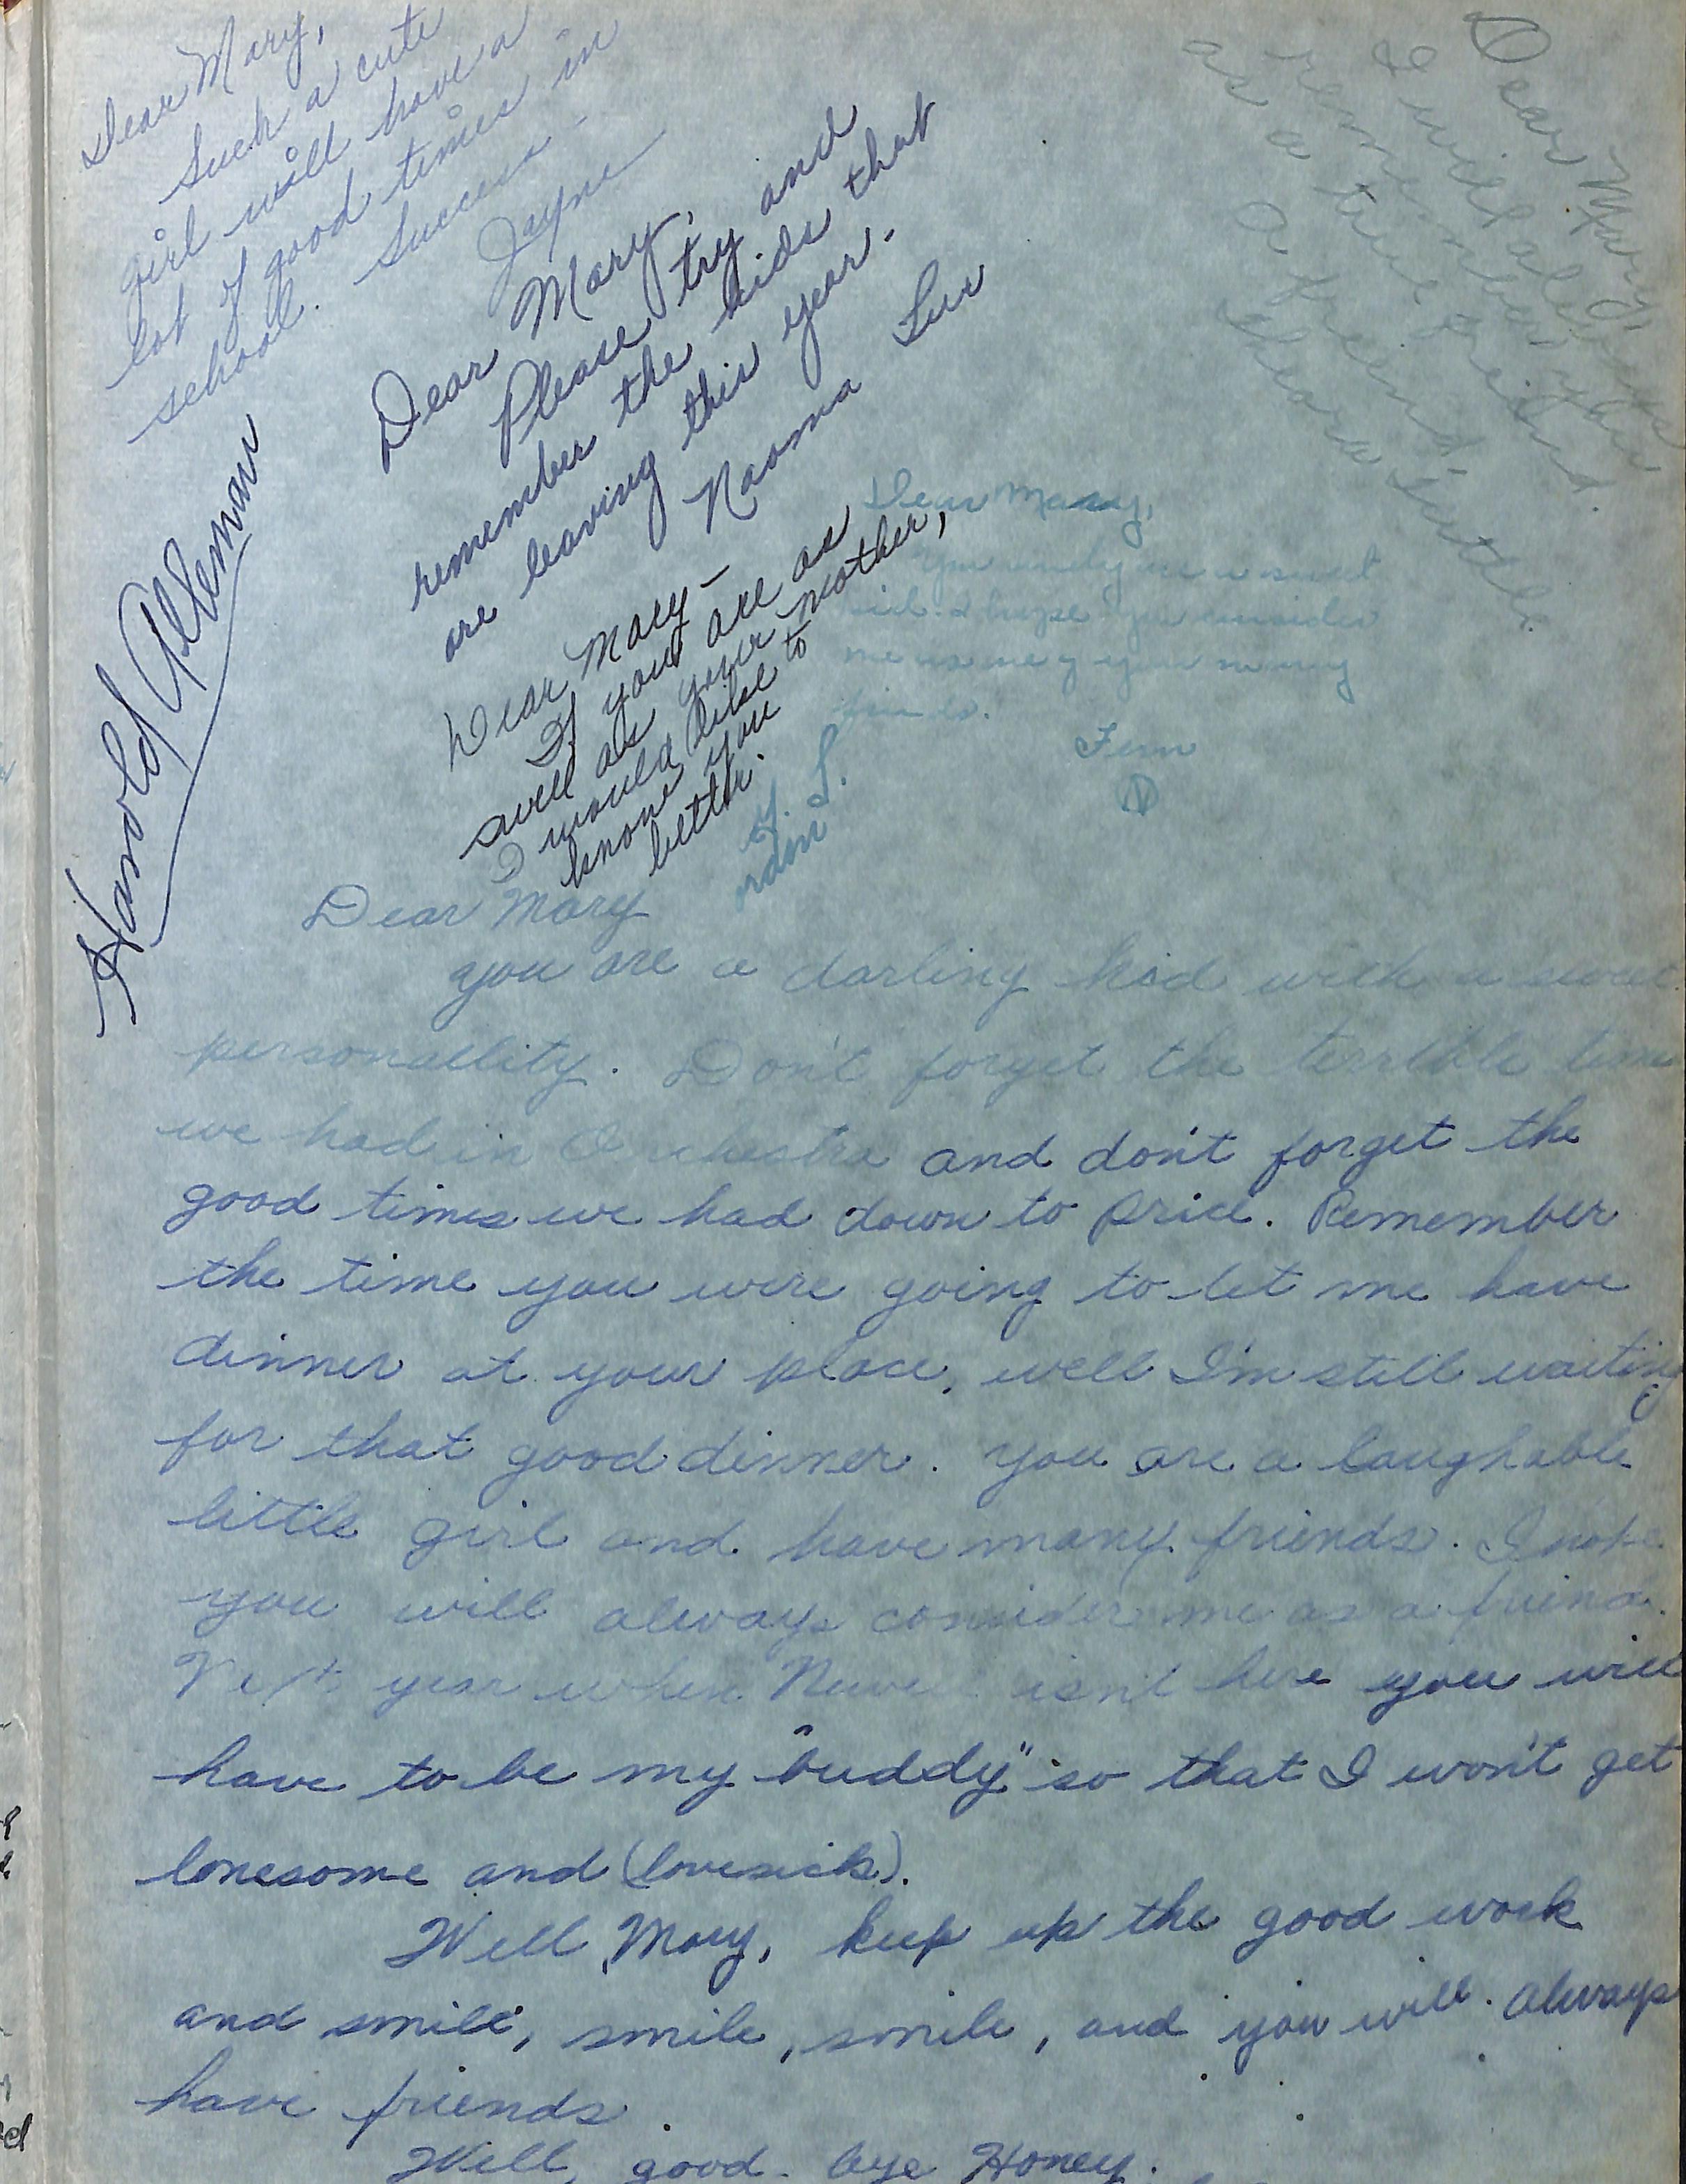 Dear Mary,
Such a cute
girl will have a
lot of good times in
school. Success -
Jayne
Dear Mary,
Please try and
remember the kids that
are leaving this year.
Naoma Lee
Dear Mary,
I will always
remember you
as a true freind.
A freind,
Harold Alleman
Dear Mary -
If you are as
swell as your mother,
I would like to
know you
better.
Y. L.
Dear Mary,
You surely are a sweet
kid. I hope you consider
me as one of your many
friends.
Fern
Dear Mary
you are a darling kid with a sweet
personallity. Don't forget the terrible time
we had in Orchestra and don't forget the
good times we had down to Price. Remember
the time you were going to let me have
dinner at your place, well I'm still waiting
for that good dinner. you are a laughable
little girl and have many friends. I hope
you will always consider me as a friend.
Next year when isn't here you will
have to be my "buddy" so that I won't get
lonesome and (lovesick).
Well, Mary, keep up the good work
and smile, smile, smile, and you will always
have friends.
Well, good-bye Honey.